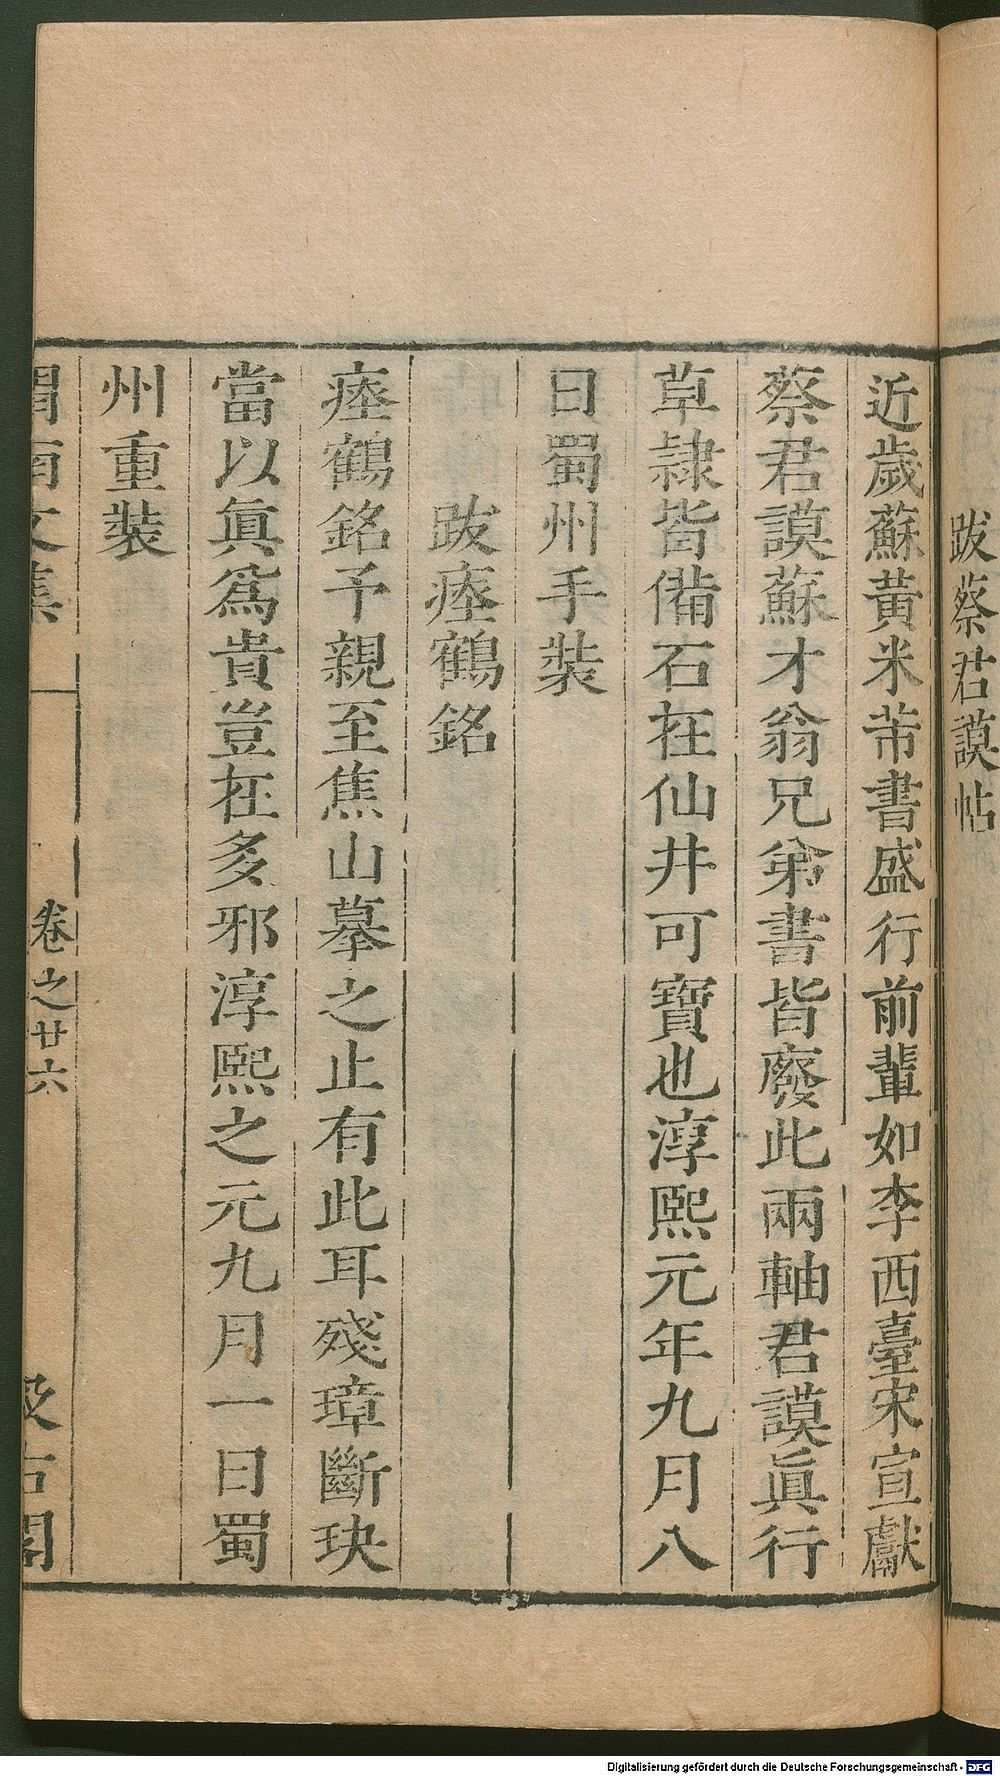 跋蔡君謨帖
近歲蘇黃米芾書盛行前輩如李西臺宋宣獻
蔡君謨蘇才翁兄弟書皆廢此兩軸君謨眞行
草隷皆備石在仙井可寶也淳熙元年九月八
日蜀州手裝
跋瘞鶴銘
瘞鶴銘予親至焦山摹之止有此耳殘璋斷玦
當以眞爲貴豈在多邪淳熙之元九月一日蜀
州重裝
渭南文集 卷之廿六 汲古閣
Digitalisierung gefördert durch die Deutsche Forschungsgemeinschaft - DFG